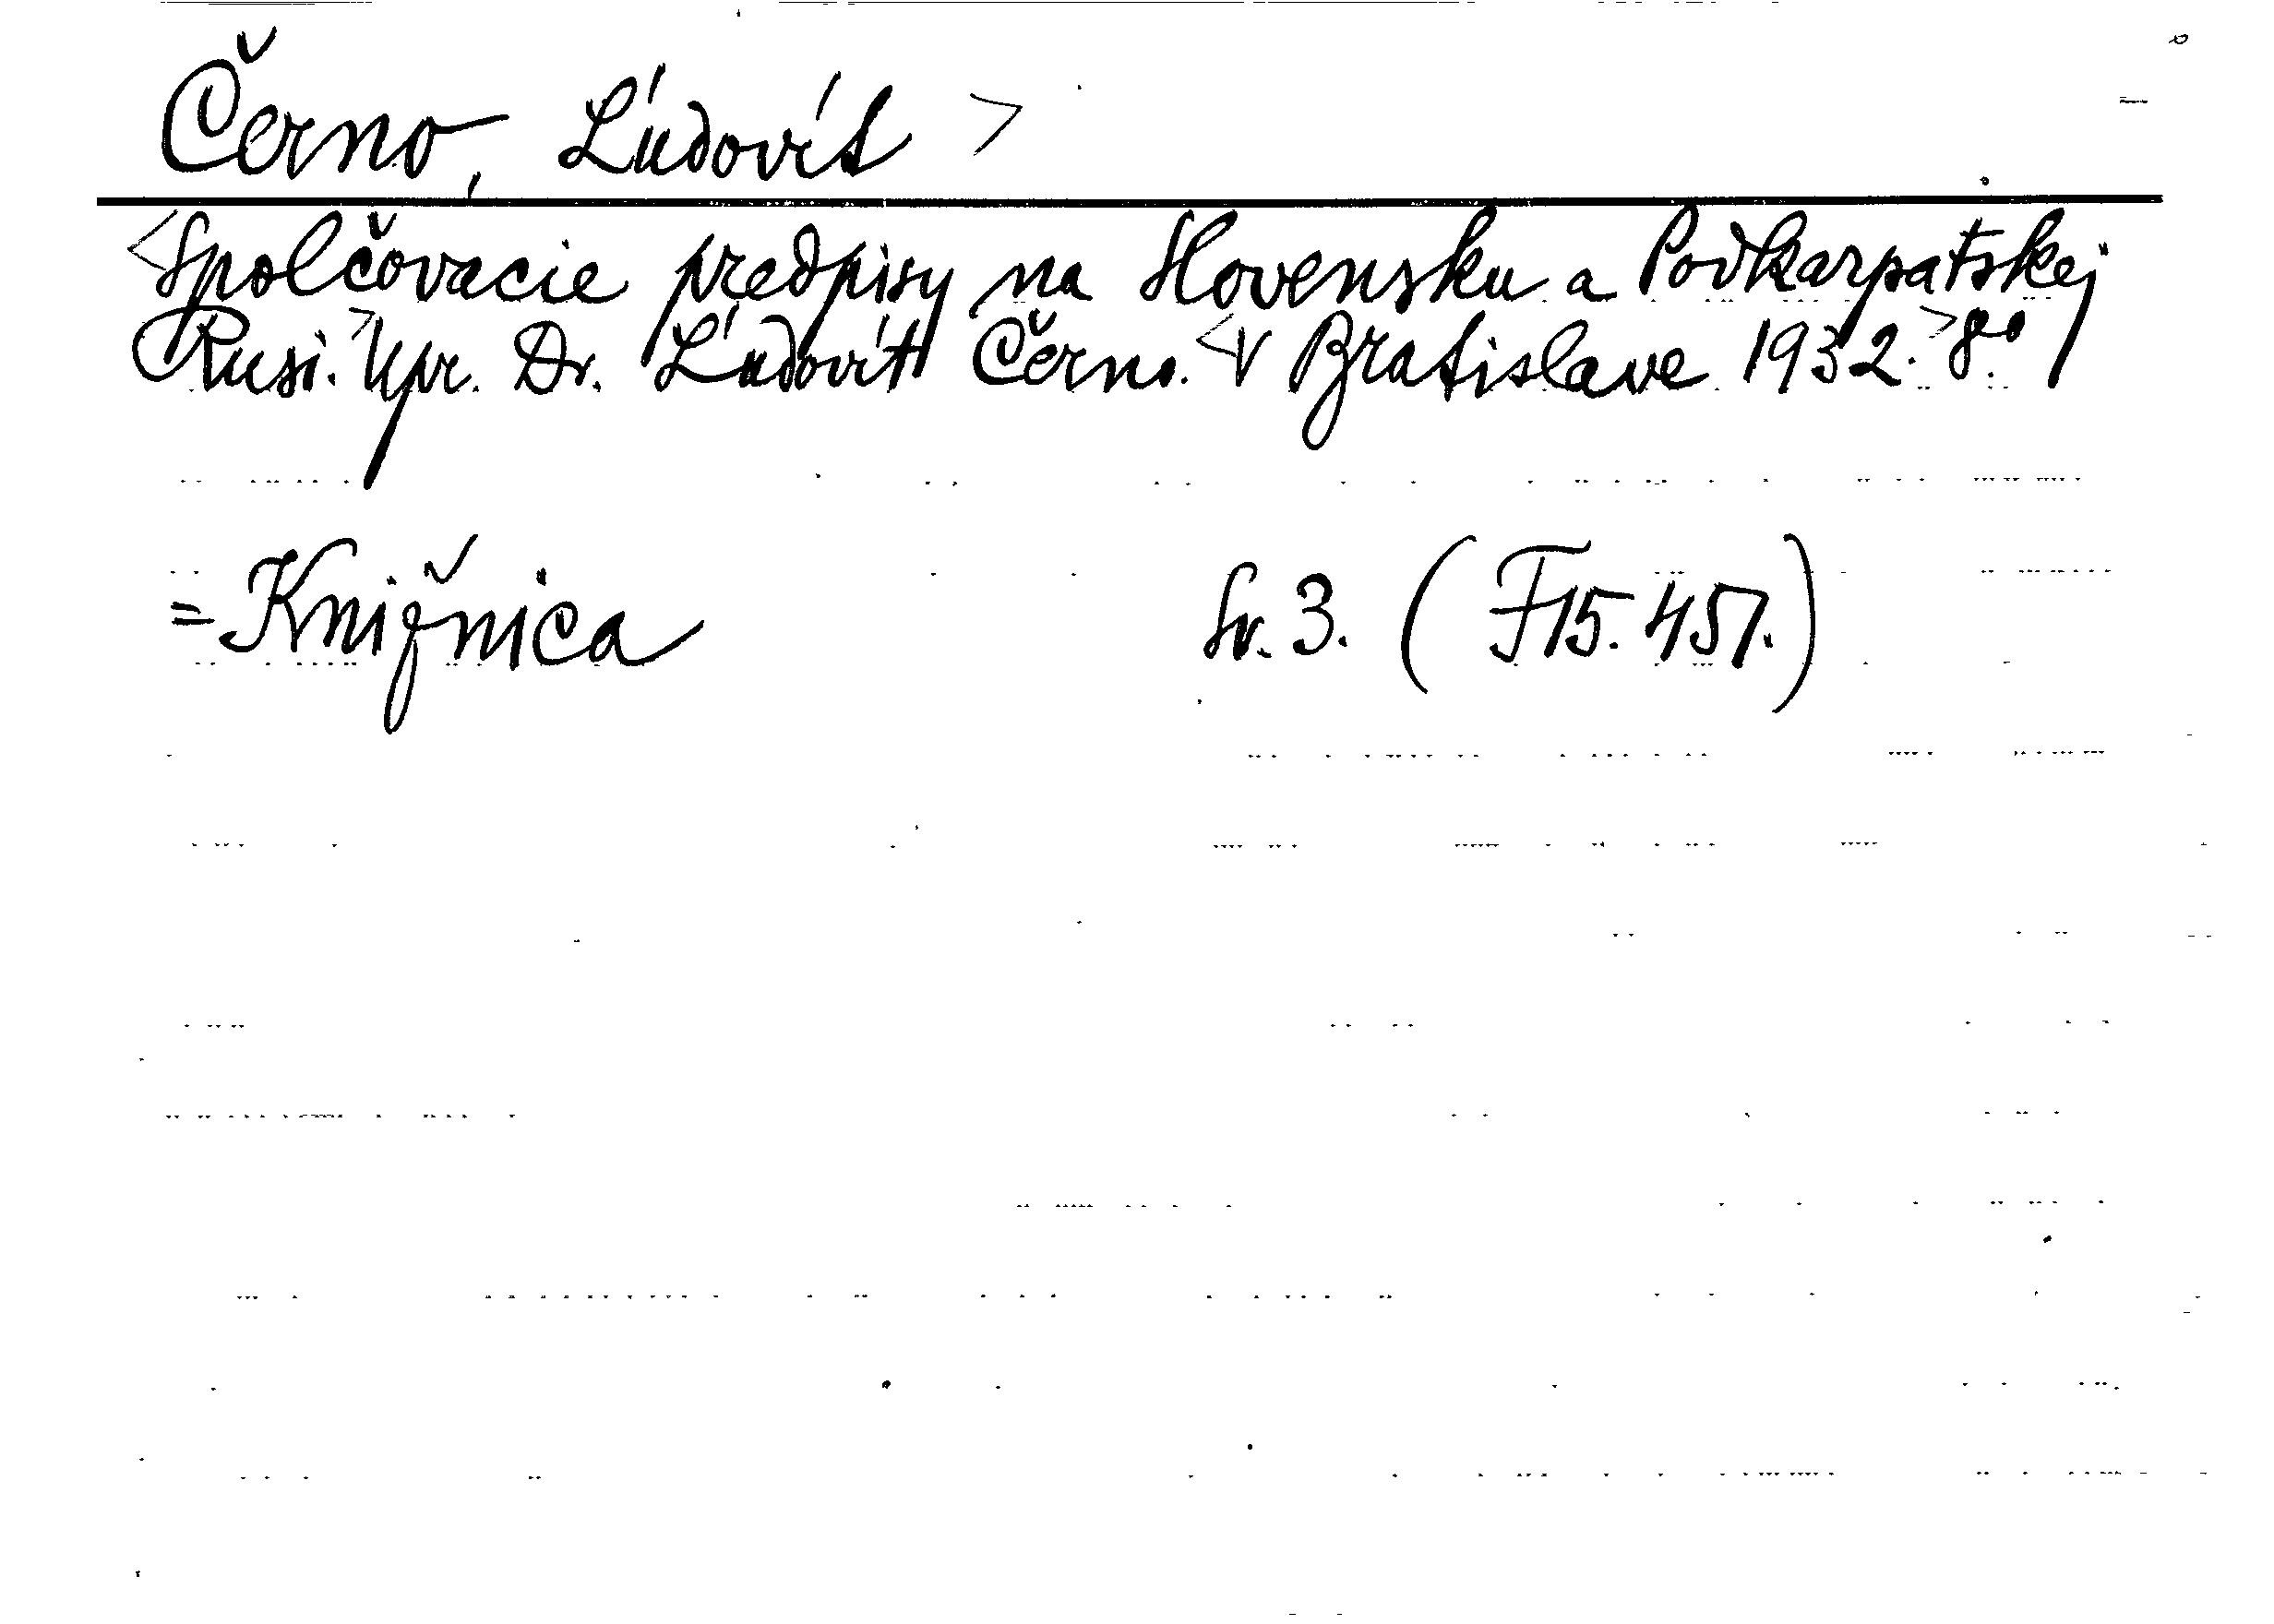 Černo, Ľudovít >
<Spolčovacie predpisy na Slovensku a Podkarpatskej
Rusi.> Upr. Dr. Ľudovít Černo. <V Bratislave 1932.> 8.°
= Knižnica Sv. 3. (F15.457.)